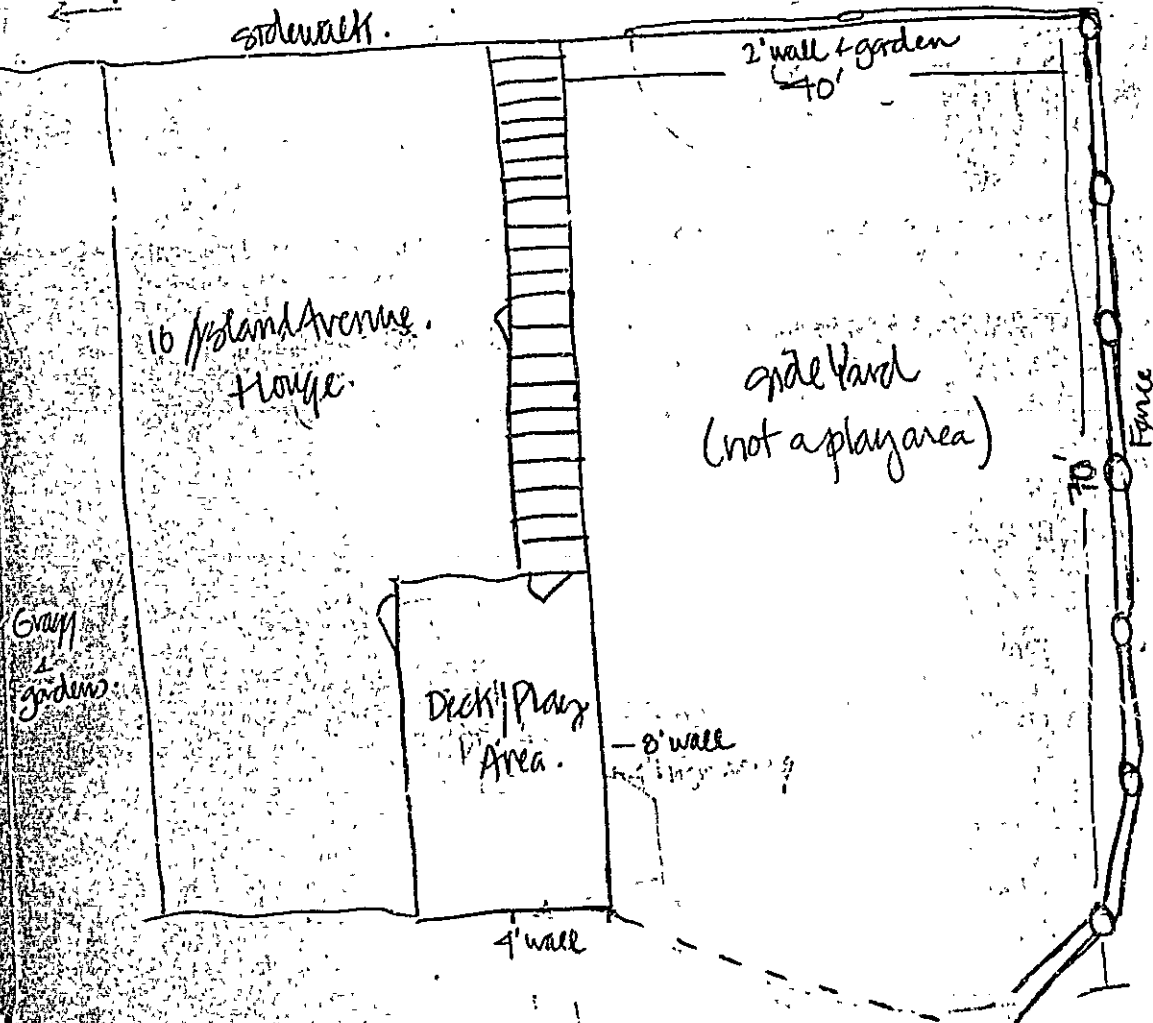 sidewalk.
2' wall + garden
40'
16 Island Avenue.
House.
side Yard
(not a play area)
Fence
70'
Grass
+
gardens.
Deck / Play
Area.
8' wall
4' wall